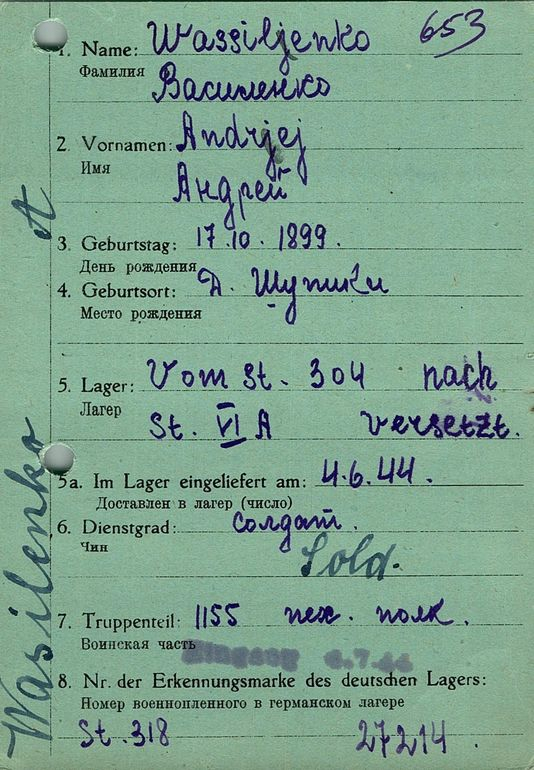 653
1. Name: Wassiljenko
Фамилия Василенко
2. Vornamen: Andrjej
Имя Андрей
3. Geburtstag: 17.10.1899.
День рождения
4. Geburtsort: Д. Шупики
Место рождения
5. Lager: Vom St. 304 nach
Лагер St. VI A versetzt.
5a. Im Lager eingeliefert am: 4.6.44.
Доставлен в лагер (число)
6. Dienstgrad: солдат.
Чин Sold.
7. Truppenteil: 1155 пех. полк.
Воинская часть
Eingang 6.7.44
8. Nr. der Erkennungsmarke des deutschen Lagers:
Номер военнопленного в германском лагере
St. 318 27214.
Wasilenko A